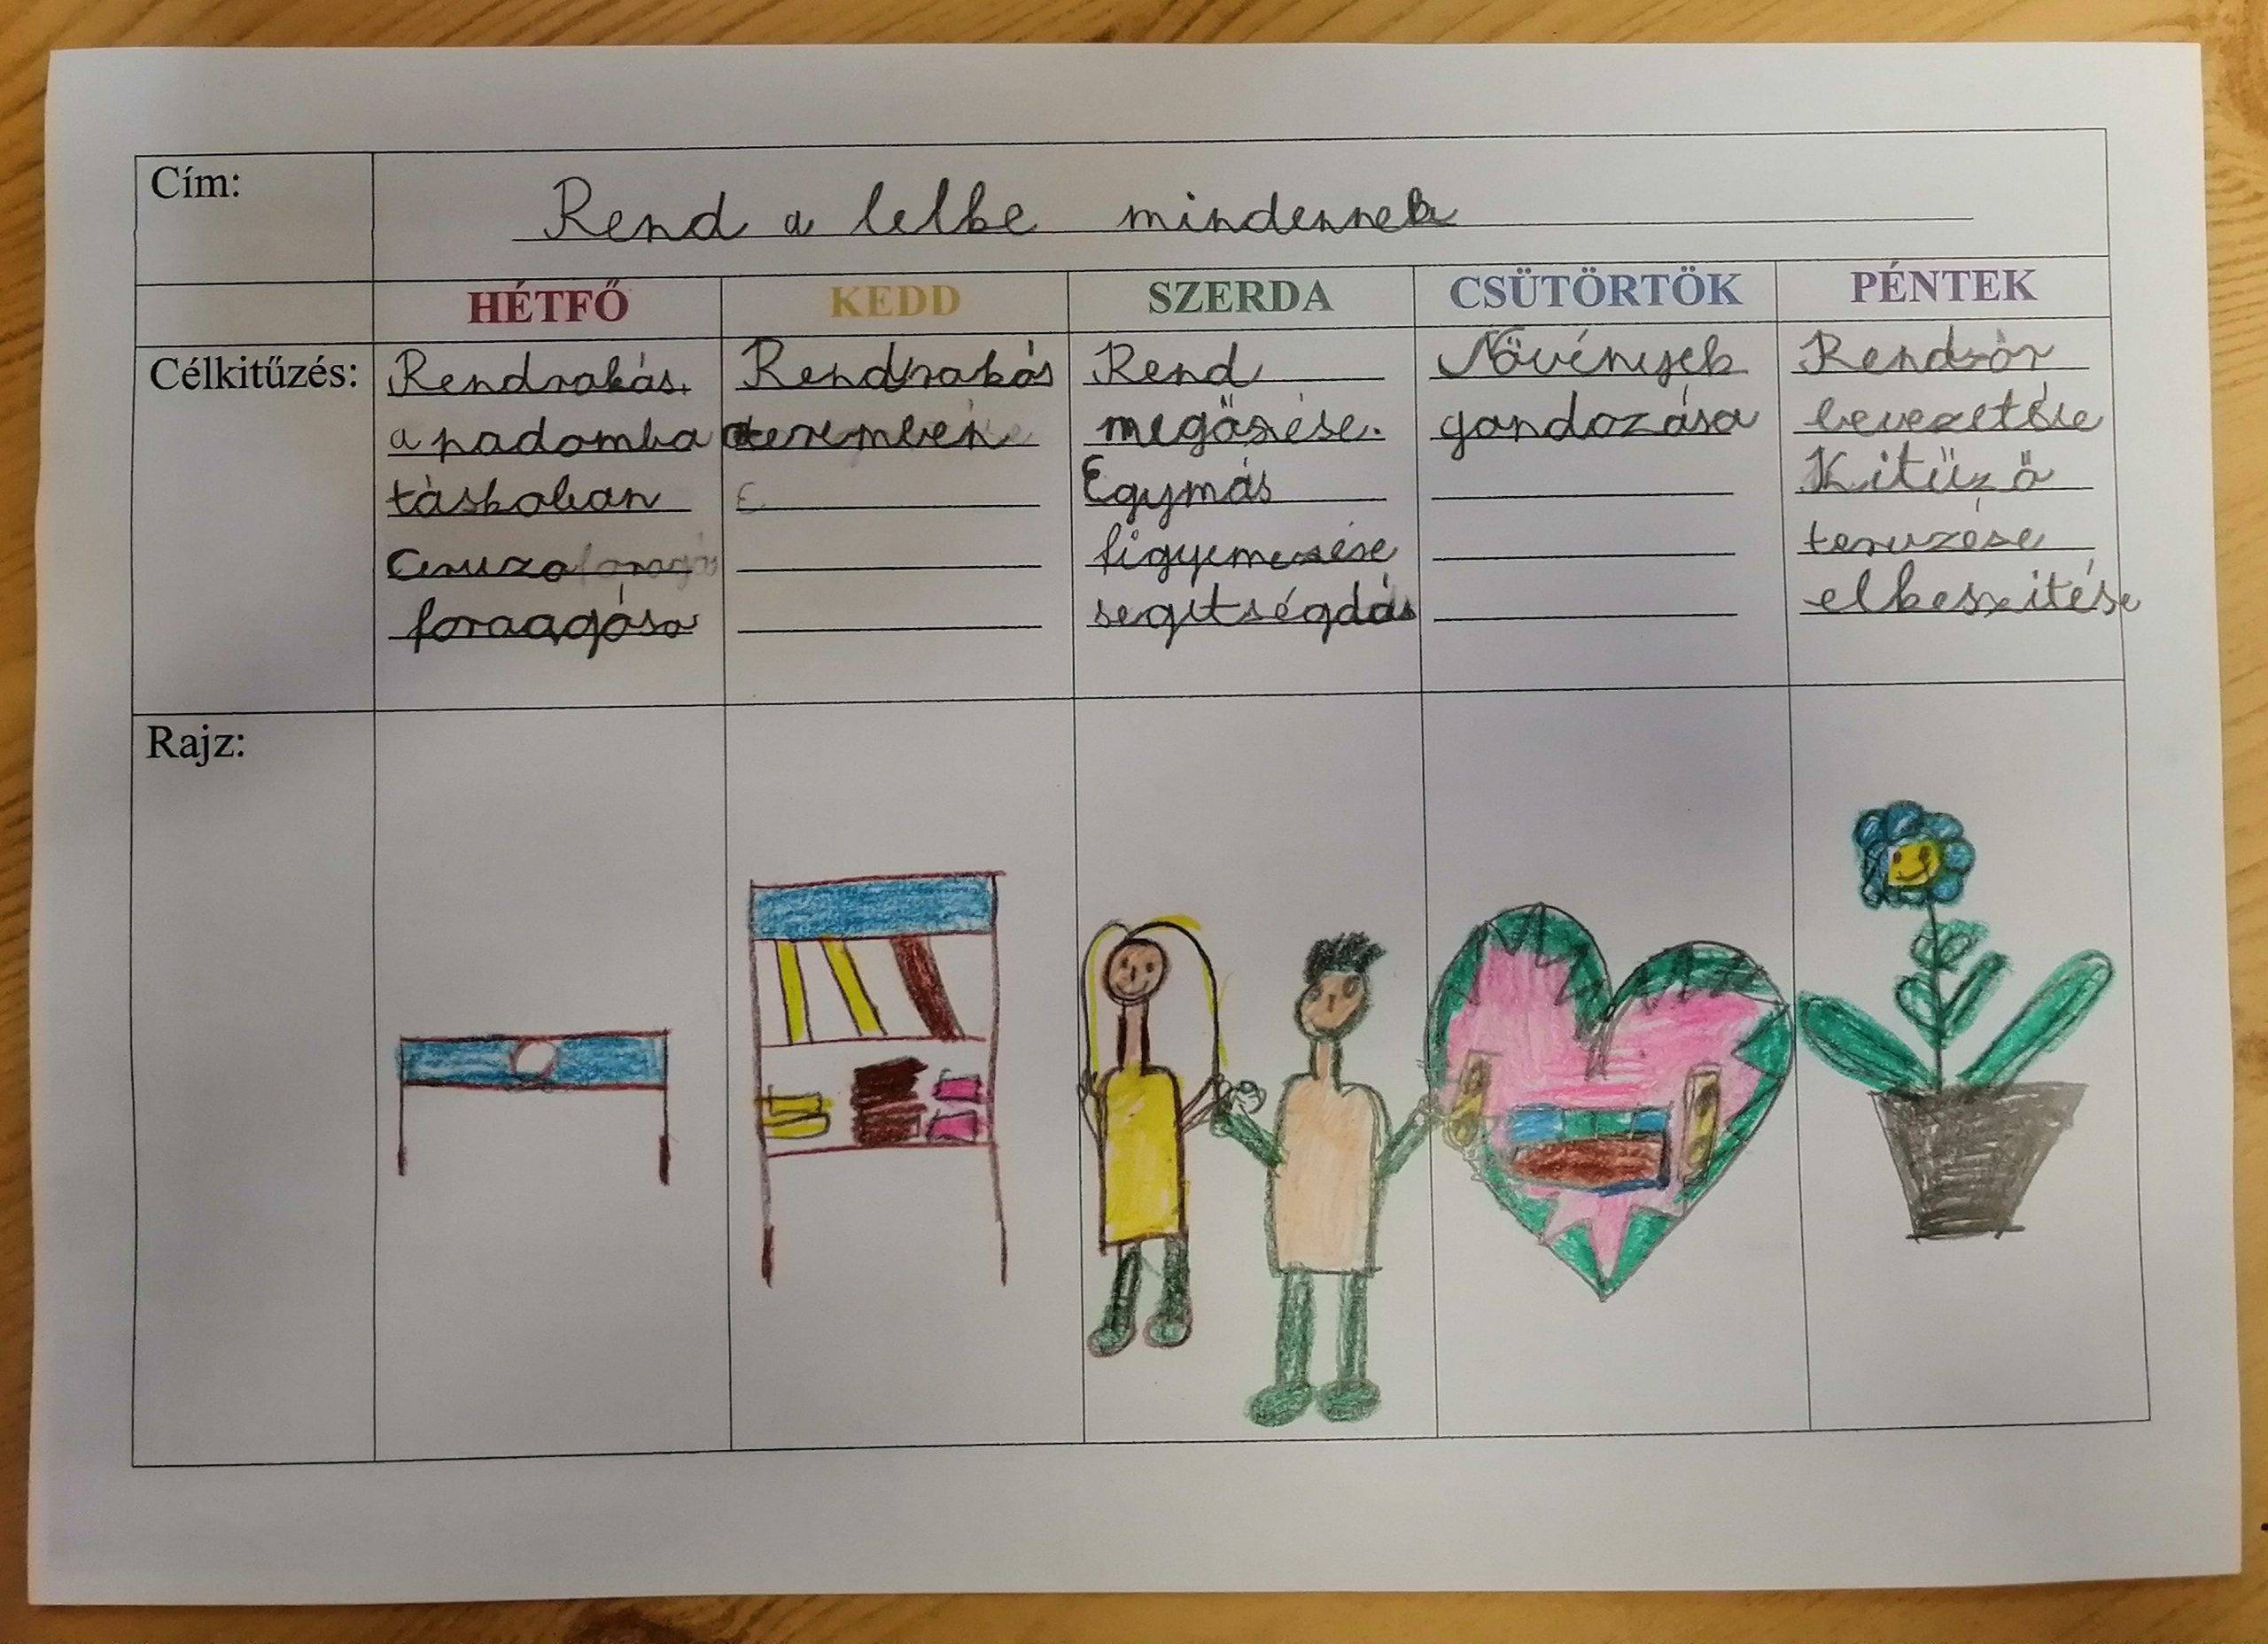 Cím:
Rend a lelke mindennek
HÉTFŐ KEDD SZERDA CSÜTÖRTÖK PÉNTEK
Célkitűzés:
Rendrakás
a padomba
táskában
Ceruza
faragása
Rendrakás
teremben
Rend
megőrzése.
Egymás
figyemezése
segitségdás
Növények
gondozása
Rendőr
bevezetése
Kitűző
tervzése
elkeszitése
Rajz: